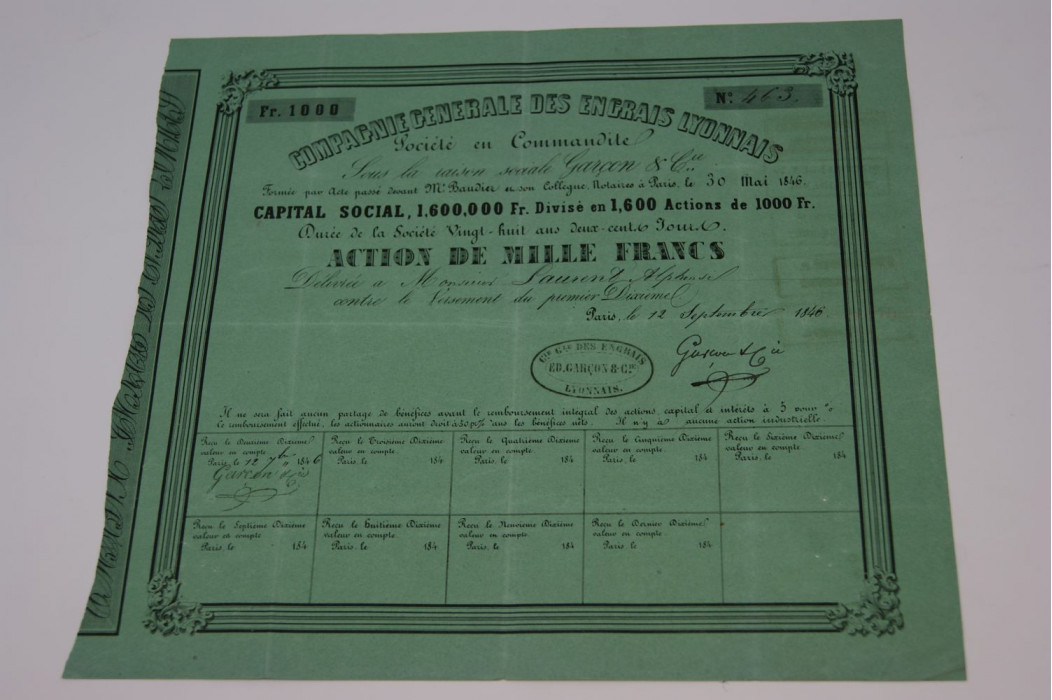 Fr. 1000
Nº 463.
COMPAGNIE GENERALE DES ENGRAIS LYONNAIS
Société en Commandite
Sous la raison sociale Garçon & Cie.
Formée par Acte passé devant Mr Baudier et son Collègue, Notaires à Paris, le 30 Mai 1846.
CAPITAL SOCIAL, 1,600,000 Fr. Divisé en 1,600 Actions de 1000 Fr.
Durée de la Société Vingt-huit ans deux-cents Jours.
ACTION DE MILLE FRANCS
Délivrée à Monsieur Laurent Alphonse
contre le Versement du premier Dixième
Paris, le 12 Septembre 1846
CIE GALE DES ENGRAIS
ED. GARÇON & CIE
LYONNAIS.
Garçon & Cie
Il ne sera fait aucun partage de bénéfices avant le remboursement intégral des actions, capital et intérêts à 5 pour %
Le remboursement effectué, les actionnaires auront droit à 50 p% dans les bénéfices nets. Il n'y a aucune action industrielle
Reçu le Deuxième Dixième
valeur en compte
Paris, le 12 7bre 1846
Garçon & Cie
Reçu le Troisième Dixième
valeur en compte
Paris, le 184
Reçu le Quatrième Dixième
valeur en compte
Paris, le 184
Reçu le Cinquième Dixième
valeur en compte
Paris, le 184
Reçu le Sixième Dixième
valeur en compte
Paris, le 184
Reçu le Septième Dixième
valeur en compte
Paris, le 184
Reçu le Huitième Dixième
valeur en compte
Paris, le 184
Reçu le Neuvième Dixième
valeur en compte
Paris, le 184
Reçu le Dernier Dixième
valeur en compte
Paris, le 184